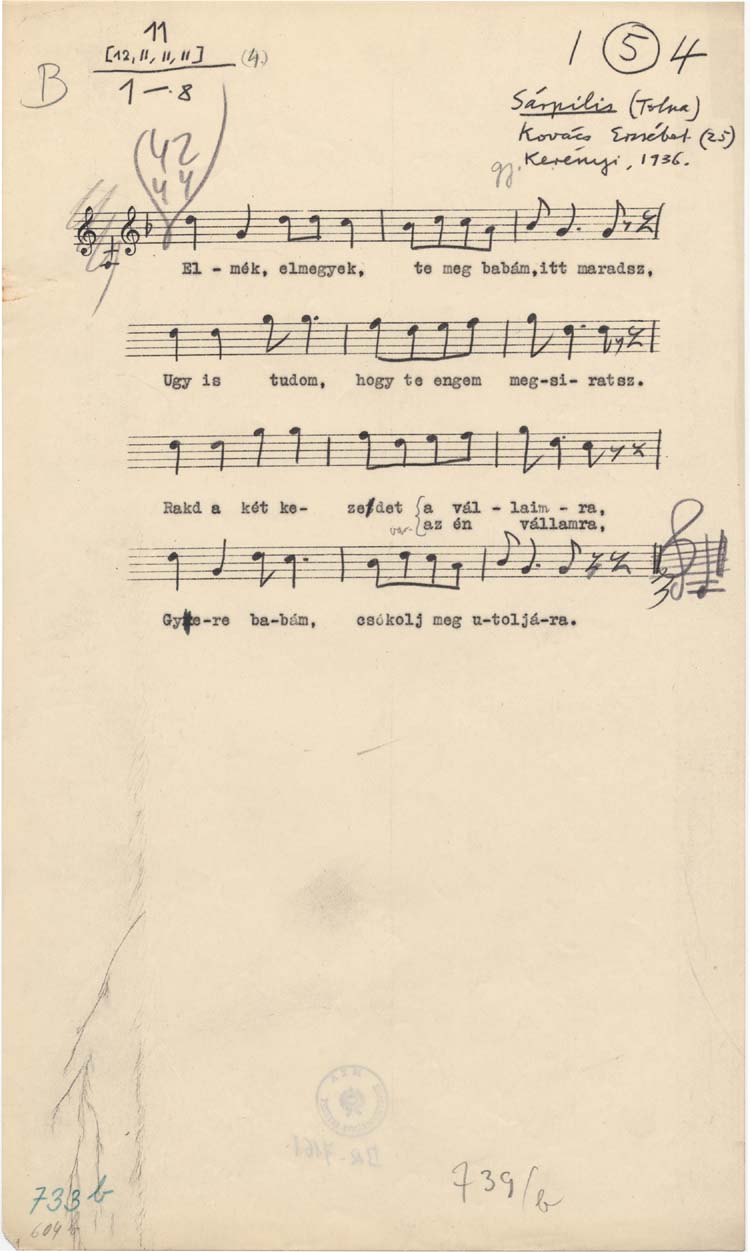 11
[12, 11, 11, 11] (4.)
1 — 8
B
1 5 4
Sárpilis (Tolna)
Kovács Erzsébet (25)
gy. Kerényi, 1936.
42
44
El - mék, elmegyek, te meg babám, itt maradsz,
Ugy is tudom, hogy te engem meg-si- ratsz.
Rakd a két ke- zedet {a vál - laim - ra,
var. {az én vállamra,
Gye-re ba-bám, csókolj meg u-toljá-ra.
3
733 b
604 b
739/b